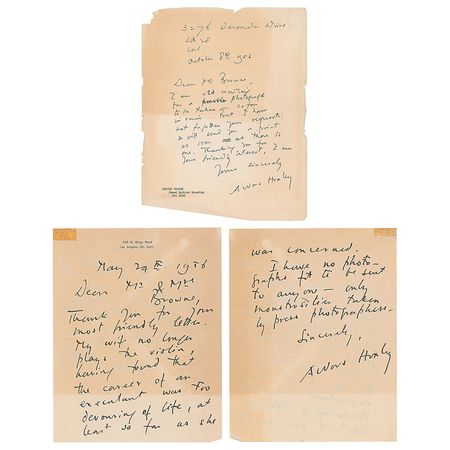 3276 Deronda Drive
LA 28
Cal.
October 8th 1955
Dear Mrs Browne,
I am still waiting
for a photograph
to be taken – so far
in vain. But I have
not forgotten your request,
& will send you a print
as soon as there is
one. Thanking you for
your friendly interest, I am
Yours sincerely
Aldous Huxley
ALDOUS HUXLEY
Famed British Novelist
740 N. Kings Road
Los Angeles 46, Cal.
May 29th 1956
Dear Mr & Mrs
Browne,
Thank you for your
most friendly letter.
My wife no longer
plays the violin,
having found that
the career of an
executant was too
devouring of life, at
least so far as she
was concerned.
I have no photo-
graphs fit to be sent
to anyone – only
monstrosities taken
by press photographers.
Sincerely,
Aldous Huxley